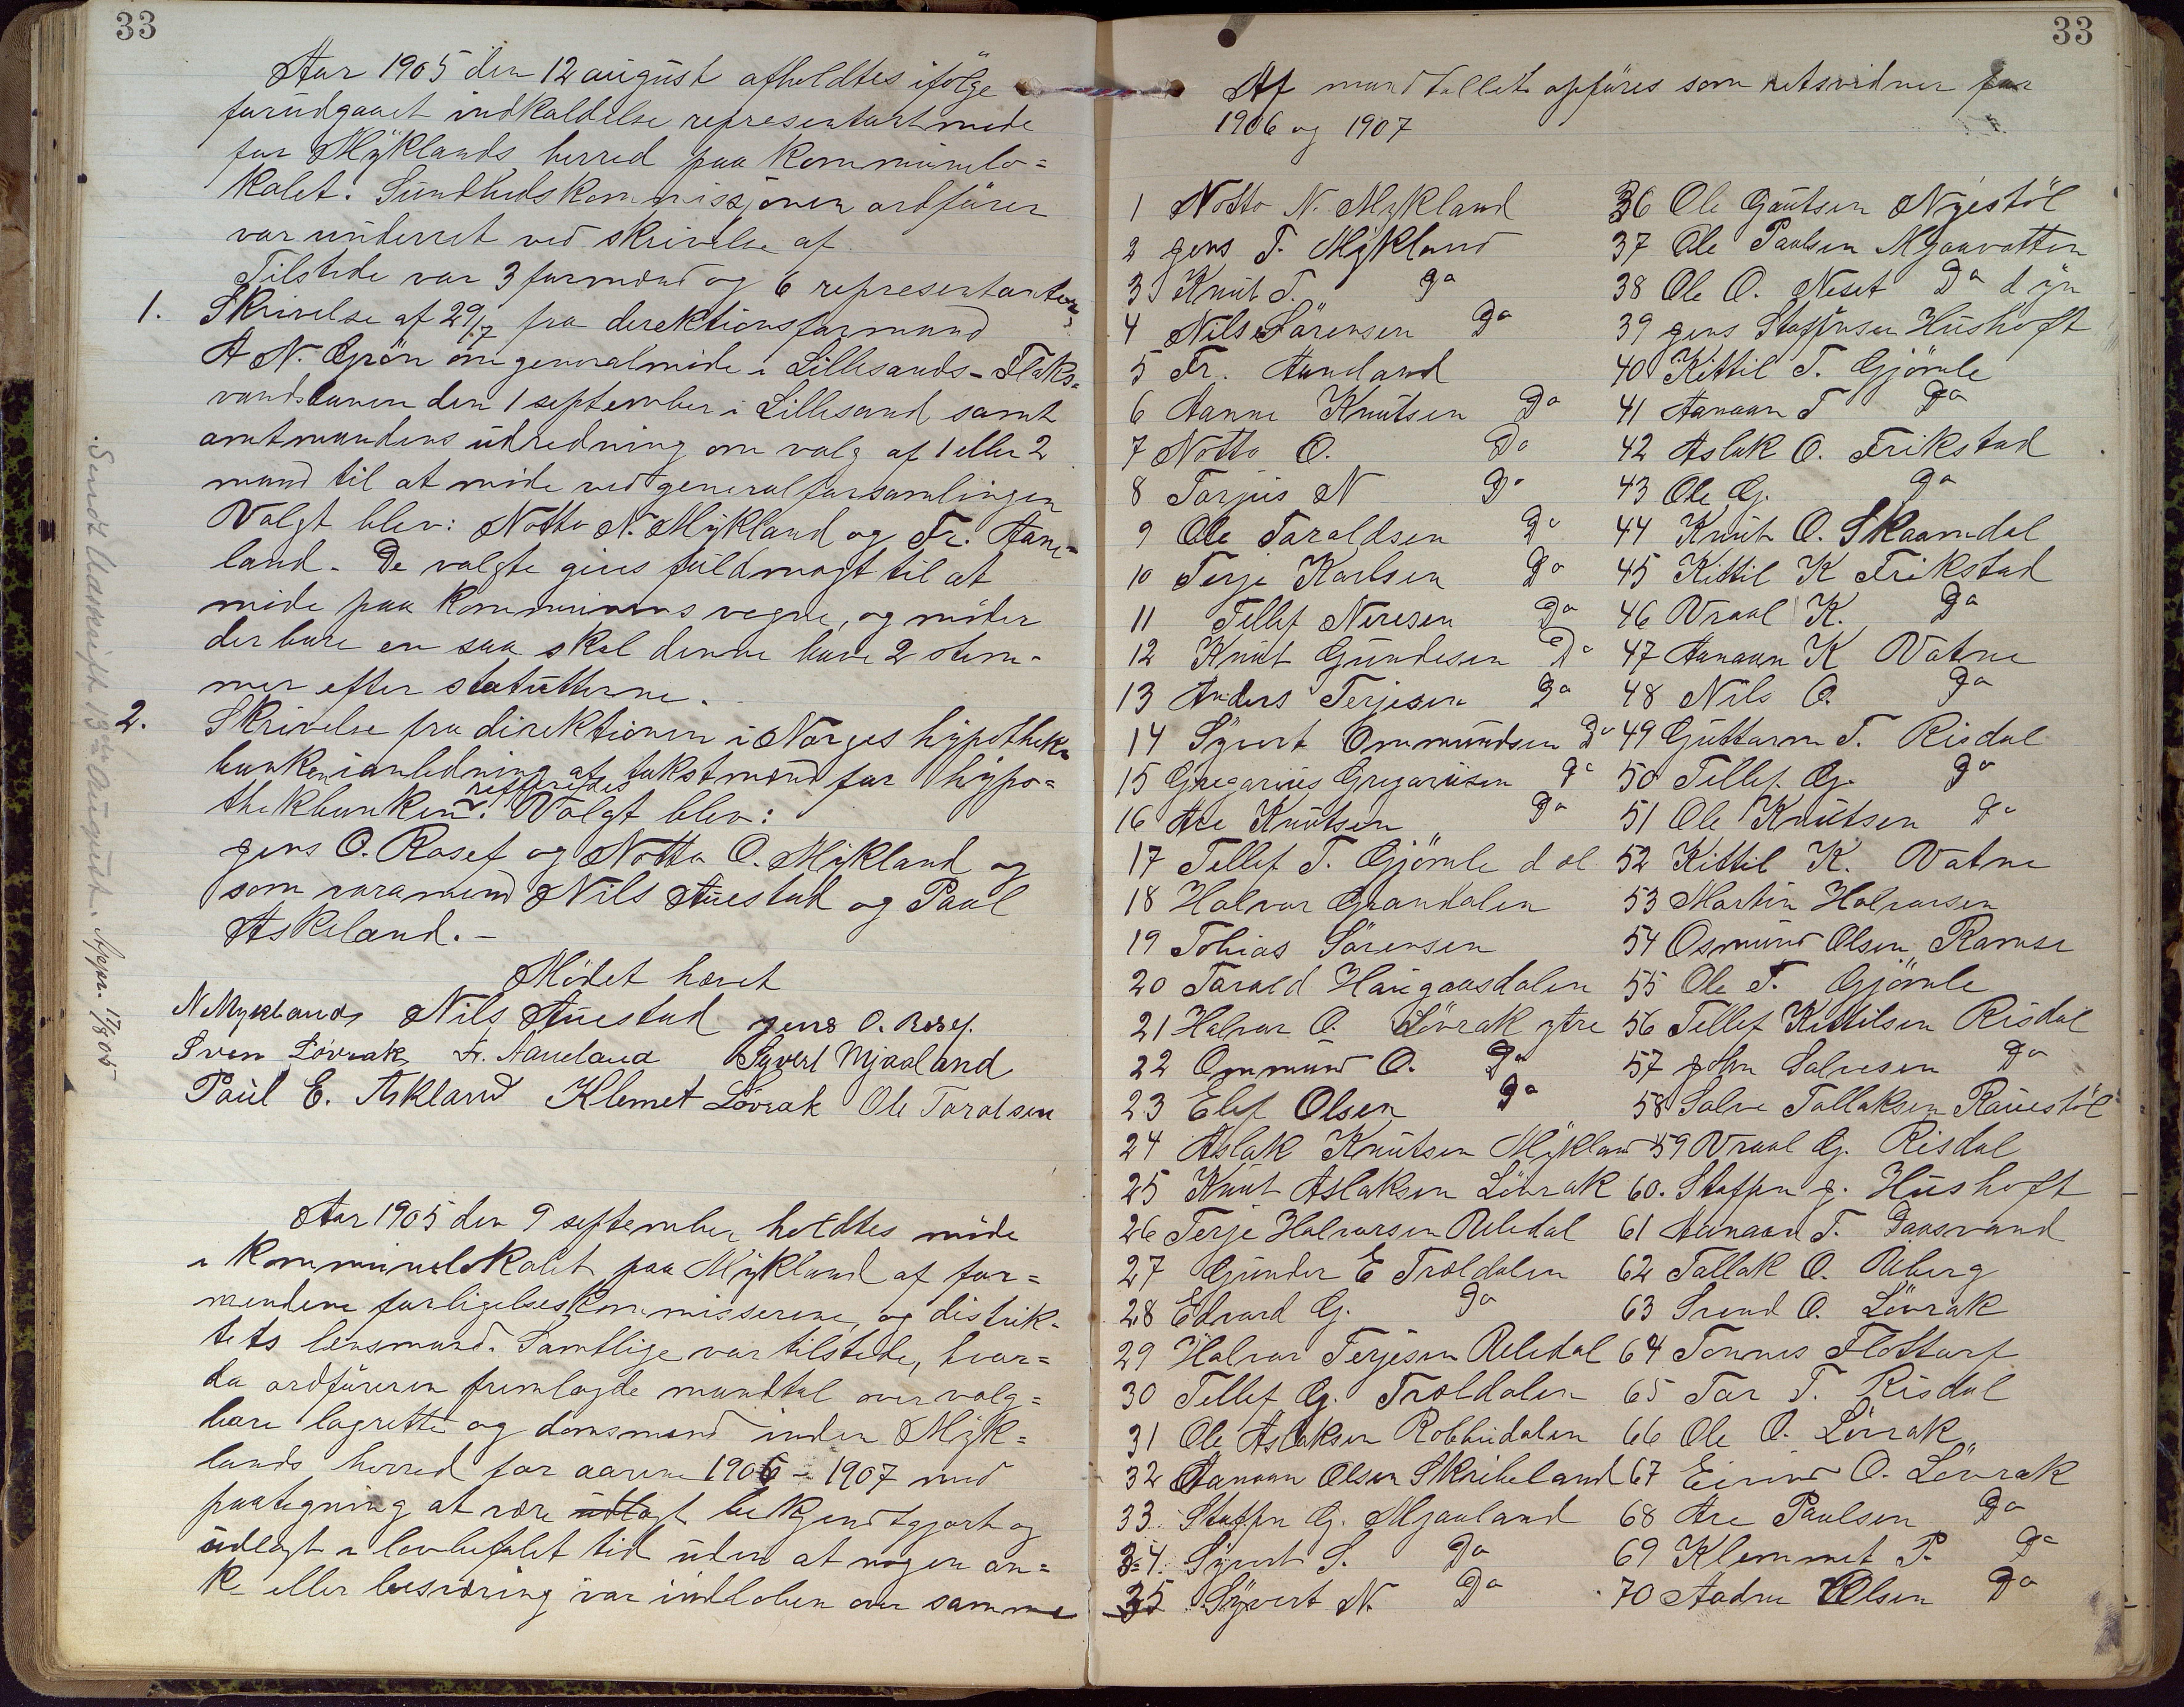 33
Aar 1905 den 12 august afholdtes ifölge
forudgaaet indkaldelse representantmöde
for Myklands herred paa Kommünelo=
kalet. Sundhedskommissjonen ordförer
var underret ved skrivelse af
Tilstede var 3 formænd og 6 representanter.
1. Skrivelse af 29/7 fra direktionsformand
A N. Grön om generalmöde i Lillesands-Flaks=
vandsbanen den 1 september i Lillesand samt
amtmandens udredning om valg af 1 eller 2
mand til at möde ved generalforsamlingen
Valgt blev: Notto N. Mykland og Fr. Aane=
land. De valgte gives fuldmagt til at
möde paa kommunens vegne, og möder
der bare en saa skal denne have 2 stem-
mer efter statutterne.
2. Skrivelse fra direktionen i Norges hypotheks
banken i anledning af takstmænd for hypo=
thekbanken refferedes. Valgt blev:
Jens O. Rosef og Notto O. Mykland og
som varamænd Nils Auestad og Paul
Askeland.-
Mödet hævet
N Mykland Nils Auestad Jens O. Rosef.
Sven Lövrak Fr. Aaneland Syvert Mjaaland
Paul E. Askland Klemet Lövrak Ole Taraldsen
Sendt Udskrift 13de August. Appr. 17/8 05
Aar 1905 den 9 september holdtes möde
i Kommunelokalet paa Mykland af for=
mendene forligelseskommisserene, og distrik-
tets lensmand. Samtlige var tilstede, hvor=
da ordföreren fremlagde mandtal over valg=
bare lagrette og domsmænd inden Myk=
lands herred for aarene 1906 - 1907 med
paategning at være udlagt bekjendtgjort og
udlagt i lovbefalet tid uden at nogen an=
ke eller besværing var indloben over samme
33
Af mandtallet opföres som retsvidner for
1906 og 1907
1 Notto N. Mykland
2 Jens T. Mykland
3 Knut T. Do
4 Nils Sörensen Do
5 Fr. Aaneland
6 Aanne Knutsen Do
7 Notto O. Do
8 Torjus N Do
9 Ole Taraldsen Do
10 Terje Karlsen Do
11 Tellef Neresen Do
12 Knut Gundesen Do
13 Anders Terjesen Do
14 Syvert Ommundsen Do
15 Gregarius Gregariusen Do
16 Are Knutsen Do
17 Tellef T. Gjömle d ol
18 Halvor Grandalen
19 Tobias Sörensen
20 Tarald Haugaasdalen
21 Halvor O. Lövrak ytre
22 Ommund O. Do
23 Elef Olsen Do
24 Aslak Knutsen Mykland
25 Knut Aslaksen Lövrak
26 Terje Halvorsen Uledal
27 Gunder E Troldalen
28 Edvard G. Do
29 Halvor Terjesen Uledal
30 Tellef G. Troldalen
31 Ole Aslaksen Robbudalen
32 Aanaan Olsen Skribeland
33 Staffen G. Mjaaland
34 Syvert S. Do
35 Syvert N. Do
36 Ole Gautsen Nyestöl
37 Ole Paulsen Mjaavatten
38 Ole O. Neset Do d yn
39 Jens Staffensen Hushoft
40 Kittil T. Gjömle
41 Aanaan T Do
42 Aslak O. Frikstad
43 Ole G. Do
44 Knut O. Skaamdal
45 Kittil K Frikstad
46 Vraal K. Do
47 Aanaan K Vatne
48 Nils O. Do
49 Guttorm T. Risdal
50 Tellef G. Do
51 Ole Knutsen Do
52 Kittil K. Vatne
53 Martin Halvorsen
54 Osmund Olsen Ramse
55 Ole T. Gjömle
56 Tellef Kittilsen Risdal
57 John Salvesen Do
58 Salve Tallaksen Rauestöl
59 Vraal G. Risdal
60. Staffen J. Hushoft
61 Aanaan T. Daasvand
62 Tallak O. Uberg
63 Svend O. Lövrak
64 Tönnes Flottorp
65 Tor T. Risdal
66 Ole O. Lövrak
67 Eivind O. Lövrak
68 Are Paulsen Do
69 Klemmet P. Do
70 Aadne Olsen Do